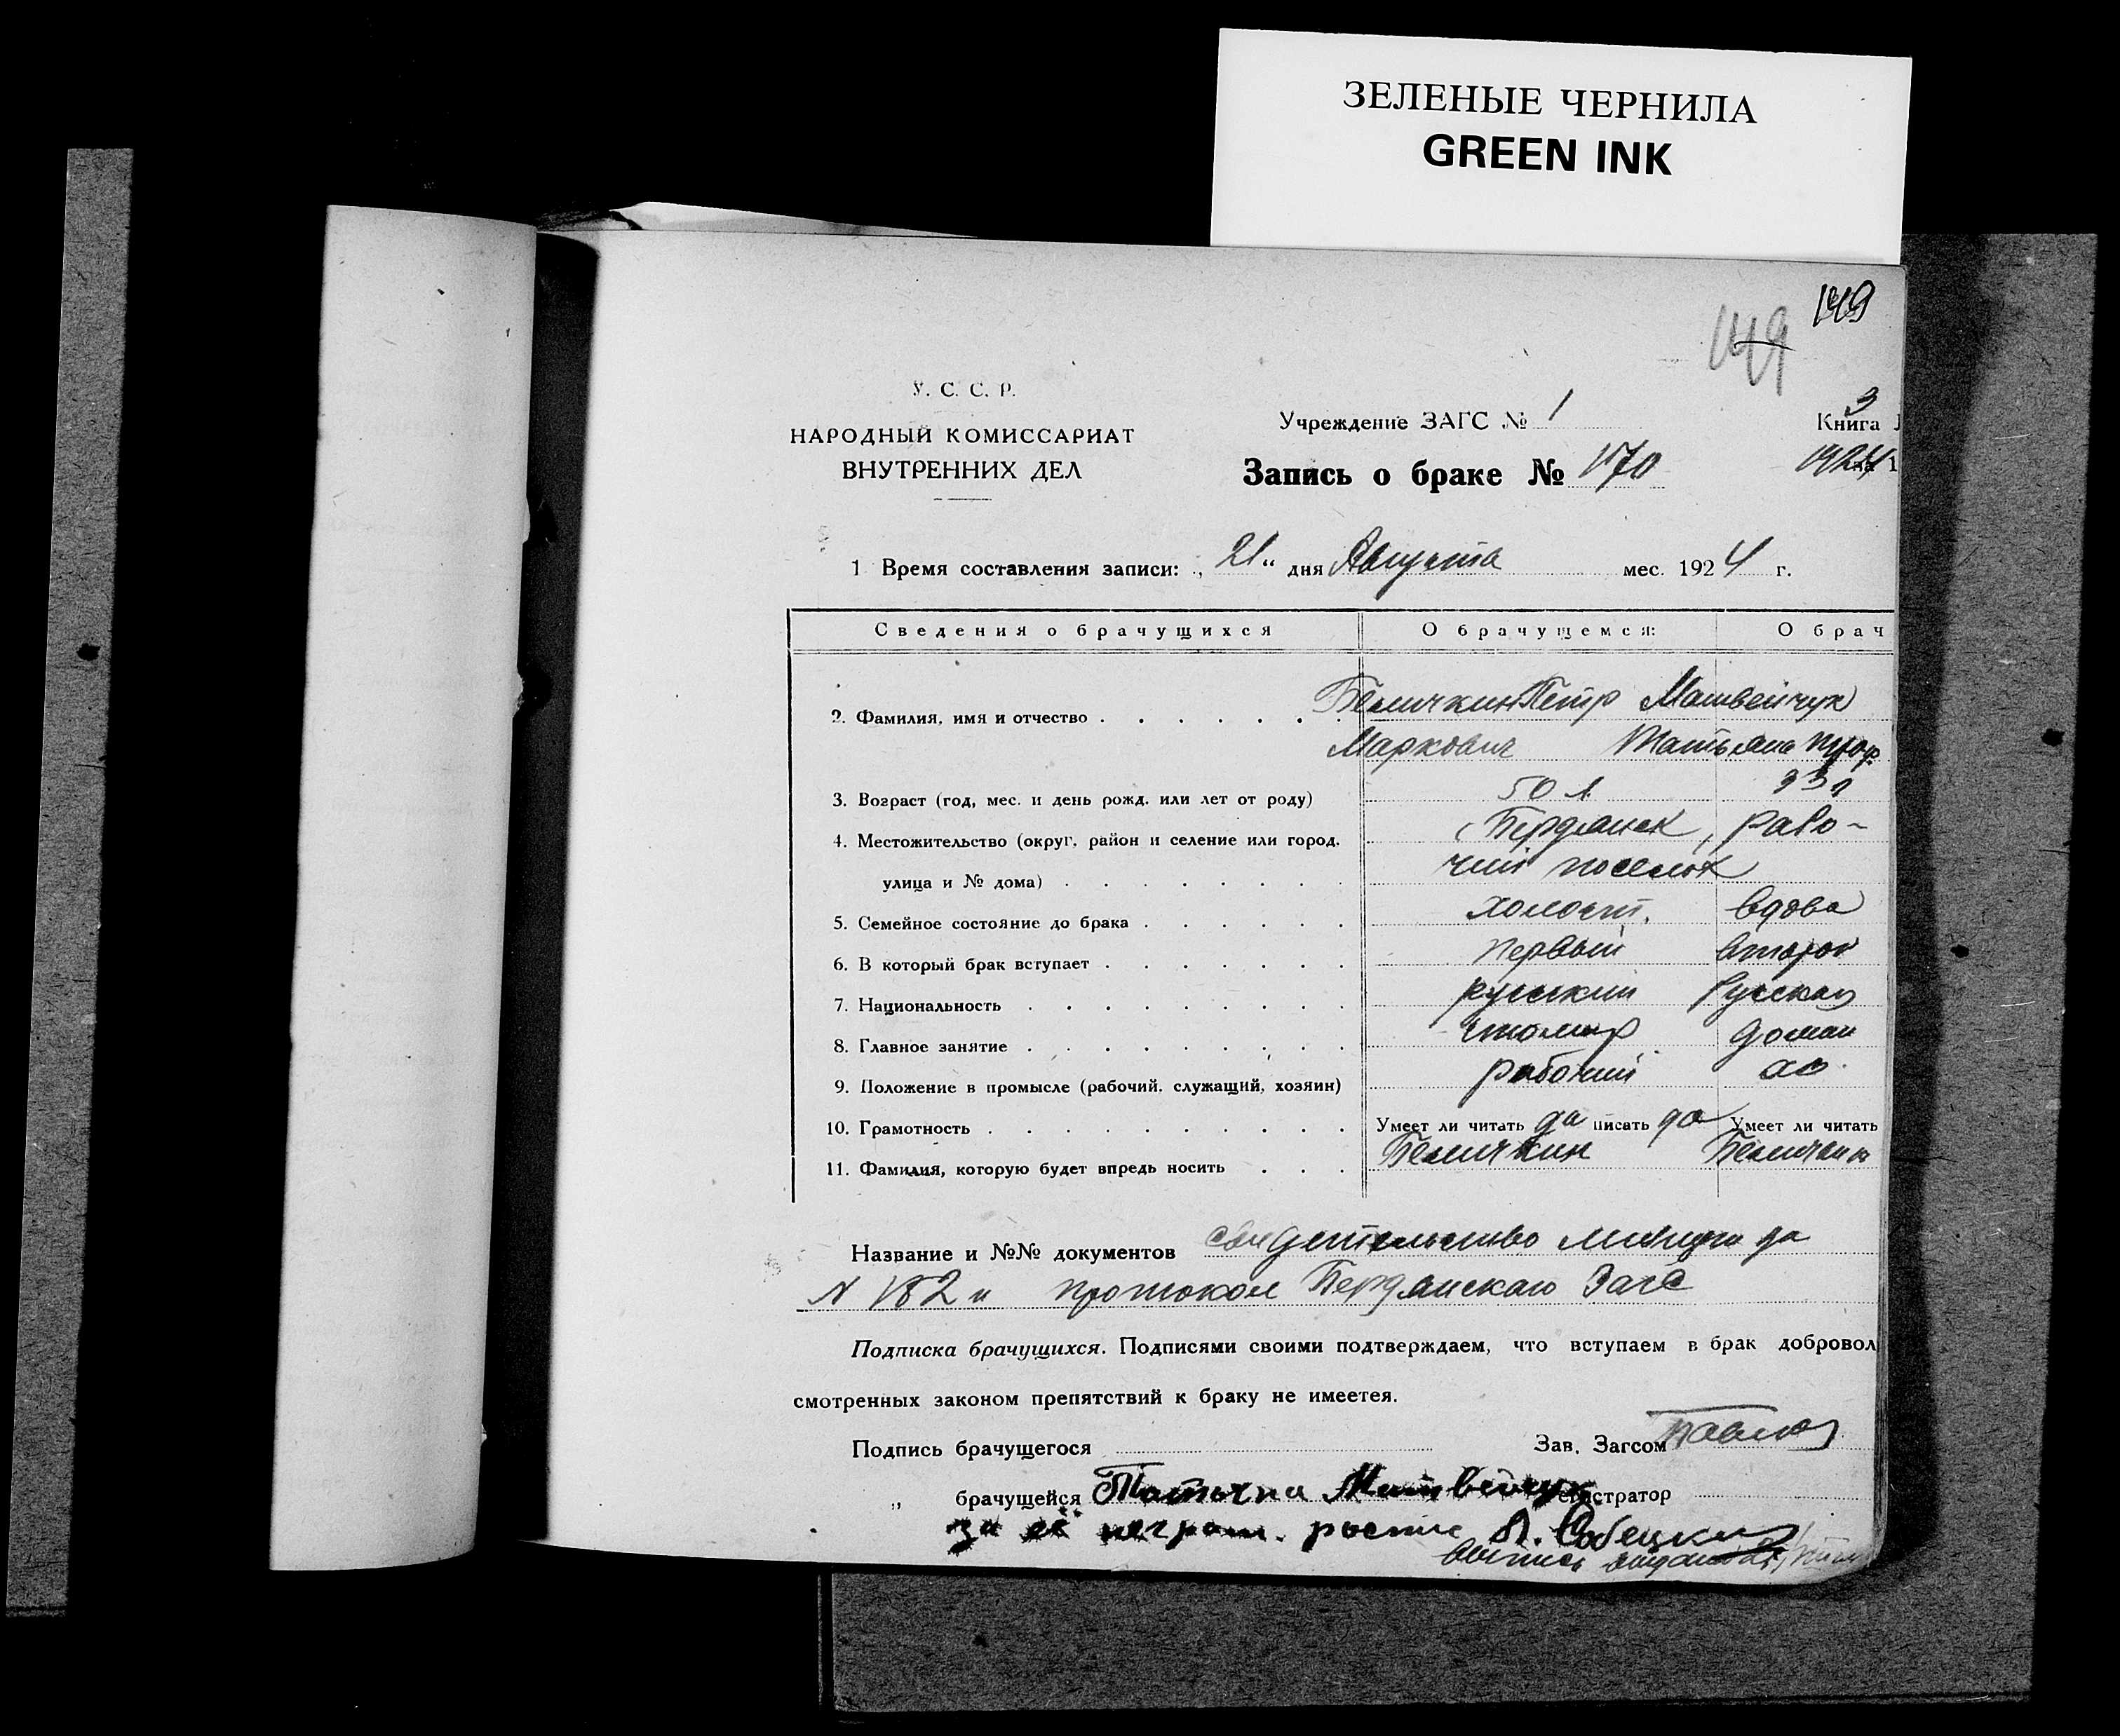 ЗЕЛЕНЫЕ ЧЕРНИЛА
GREEN INK
149
149
У. С. С. Р.
НАРОДНЫЙ КОМИССАРИАТ
ВНУТРЕННИХ ДЕЛ
Учреждение ЗАГС № 1
Книга 3
Запись о браке № 170
1924
1 Время составления записи: „ 21 “ дня Августа мес. 1924 г.
Сведения о брачущихся О брачущемся: О брач
2. Фамилия, имя и отчество . . . . . . Беличкин Петр Матвейчук
Маркович Татьяна Троф.
3. Возраст (год, мес. и день рожд. или лет от роду) 50 л 33 л
4. Местожительство (округ, район и селение или город, Бердянск, рабо-
улица и № дома) . . . . . . . . чий поселок
5. Семейное состояние до брака . . . . . . холост. вдова
6. В который брак вступает . . . . . . . первый второй
7. Национальность . . . . . . . . . русский русская
8. Главное занятие . . . . . . . . . столяр домаш
9. Положение в промысле (рабочий, служащий, хозяин) рабочий хо.
10. Грамотность . . . . . . . . . . Умеет ли читать да писать да Умеет ли читать
11. Фамилия, которую будет впредь носить . . . Беличкин Беличкин
Название и №№ документов свидетельство
N 182 и протокол Бердянскаго Загс
Подписка брачущихся. Подписями своими подтверждаем, что вступаем в брак добровол
смотренных законом препятствий к браку не имеетея.
Подпись брачущегося Зав. Загсом
„ брачущейся Татьяна Матвейчук Регистратор
за её неграм. роспис